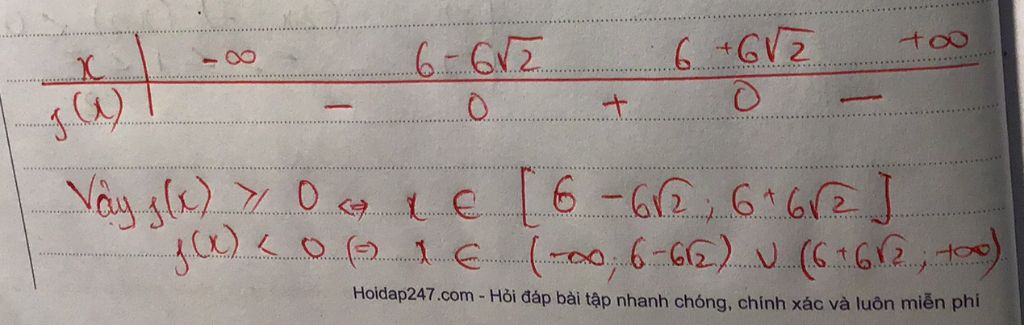 x | -∞ 6-6√2 6+6√2 +∞
f(x) | - 0 + 0 -
Vậy f(x) ≥ 0 ⇔ x ∈ [6-6√2; 6+6√2]
f(x) < 0 ⇔ x ∈ (-∞; 6-6√2) ∪ (6+6√2; +∞)
Hoidap247.com - Hỏi đáp bài tập nhanh chóng, chính xác và luôn miễn phí